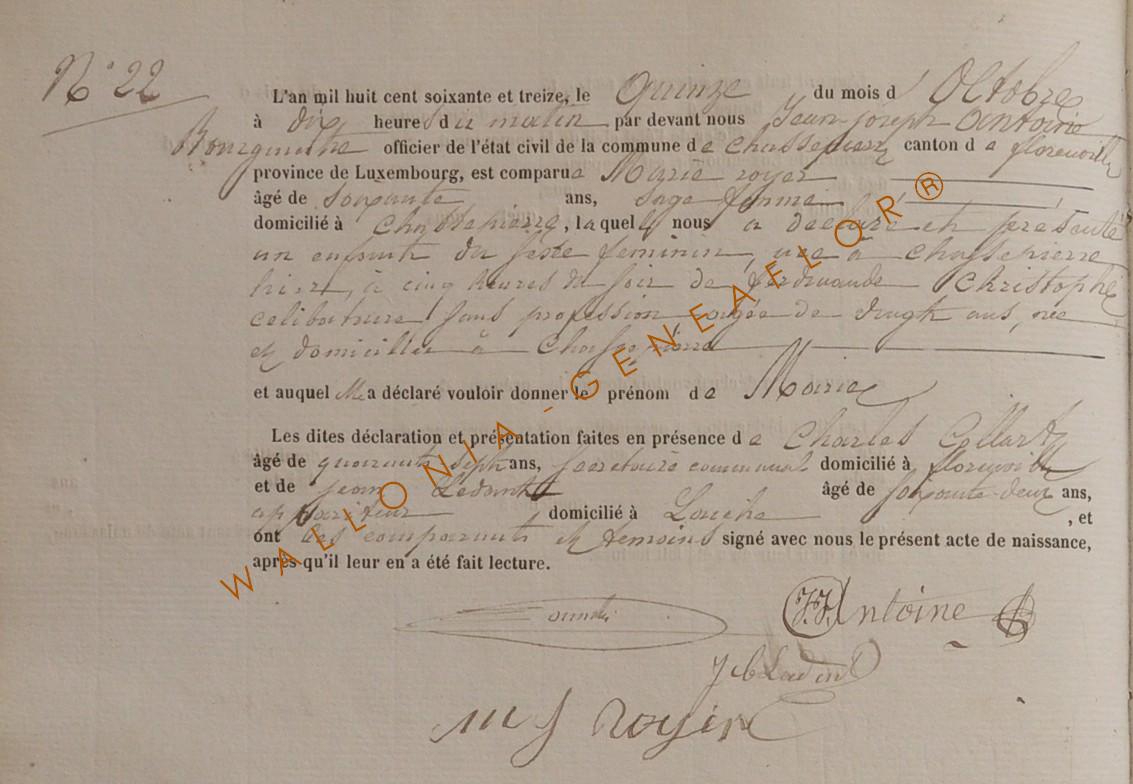 N° 22
L'an mil huit cent soixante et treize, le Quinze du mois d' Octobre
à dix heures du matin par devant nous Jean joseph Antoine
Bourgmestre officier de l'état civil de la commune de Chassepierre canton de florenville
province de Luxembourg, est comparue Marie royer
âgé de soixante ans, sage femme
domicilié à Chassepierre, laquel nous a declaré et presenté
un enfant du sexe feminin, née à chassepierre
hier, à cinq heures du soir de ferdinande Christophe
celibataire sans profession agée de vingt ans, née
et domiciliée à Chassepierre
et auquel elle a déclaré vouloir donner le prénom de Marie
Les dites déclaration et présentation faites en présence de Charles Collart
âgé de quarante sept ans, secretaire communal domicilié à florenville
et de jean âgé de soixante deux ans,
appariteur domicilié à , et
ont les comparants et temoins signé avec nous le présent acte de naissance,
après qu'il leur en a été fait lecture.
J.J. Antoine
m j royer
WALLONIA-GENEAFLOR®